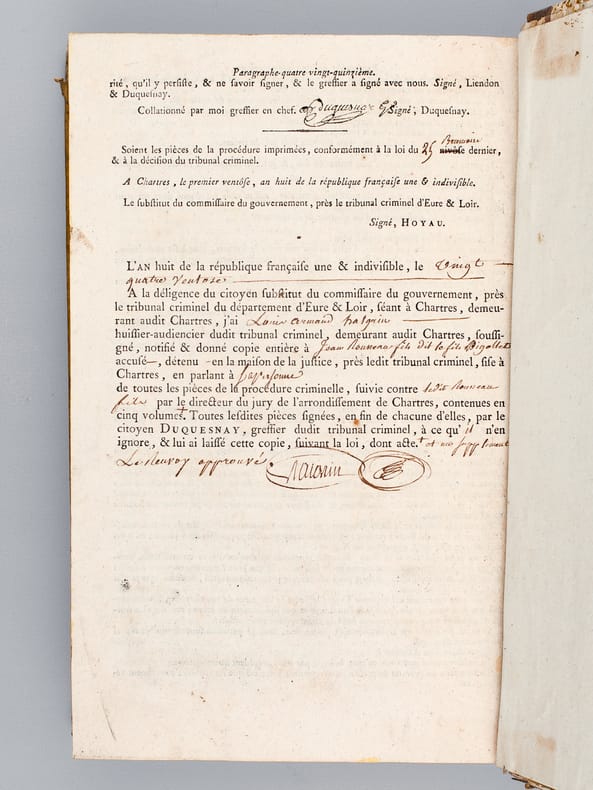 Paragraphe quatre vingt-quinzième.
rité, qu'il y persiste, & ne savoir signer, & le greffier a signé avec nous. Signé, Liendon
& Duquesnay.
Collationné par moi greffier en chef. Duquesnay Signé, Duquesnay.
Soient les pièces de la procédure imprimées, conformément à la loi du 25 Brumaire nivôse dernier,
& à la décision du tribunal criminel.
A Chartres, le premier ventôse, an huit de la république française une & indivisible.
Le substitut du commissaire du gouvernement, près le tribunal criminel d'Eure & Loir.
Signé, HOYAU.
L'AN huit de la république française une & indivisible, le vingt
quatre Ventose
A la déligence du citoyen substitut du commissaire du gouvernement, près
le tribunal criminel du département d'Eure & Loir, séant à Chartres, demeu-
rant audit Chartres, j'ai Louis armand
huissier-audiencier dudit tribunal criminel, demeurant audit Chartres, soussi-
gné, notifié & donné copie entière à Jean Rousseau fils dit le fils
accusé, détenu en la maison de la justice, près ledit tribunal criminel, sise à
Chartres, en parlant à sa personne
de toutes les pièces de la procédure criminelle, suivie contre ledit Rousseau
fils par le directeur du jury de l'arrondissement de Chartres, contenues en
cinq volumes. Toutes lesdites pièces signées, en fin de chacune d'elles, par le
citoyen DUQUESNAY, greffier dudit tribunal criminel, à ce qu'il n'en
ignore, & lui ai laissé cette copie, suivant la loi, dont acte. + et un supplement
Le Renvoy approuvé